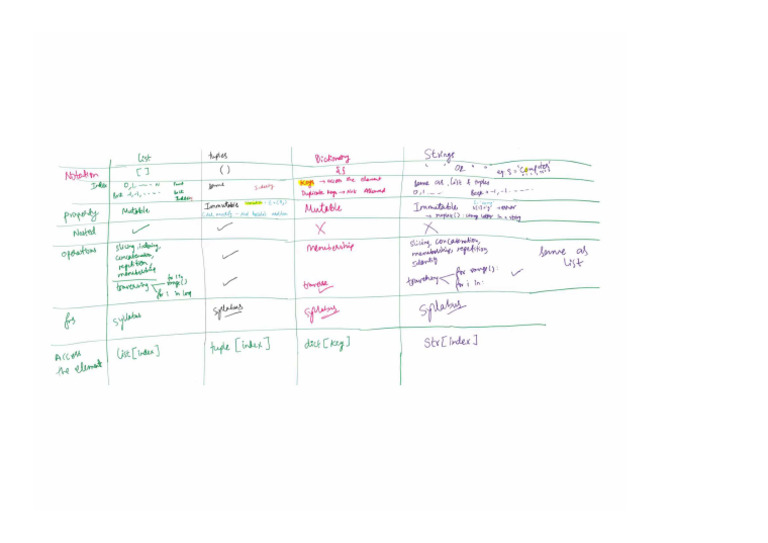 List tuples Dictionary Strings
Notation [ ] ( ) { } ' ' OR " " eg S = 'Computer'
Index 0, 1, ---- n Front same Indexing Keys → access the element same as, list & tuples
Back -1, -1, ---- Back Indexes Duplicate Keys → Not Allowed 0, 1 ---- Back = -1, -1, ------
property Mutable Immutable Mutable Immutable → error
Cant modify - → replace() : using letter in a string
Nested ✓ ✓ X X
operations slicing, indexing, ✓ membership slicing, concatenation, same as
concatenation, membership, repetition, list
repetition, identity
membership
traversing for i in ✓ traverse ✓ traversing for range() : ✓
range() for i in :
for i in
fns syllabus syllabus syllabus syllabus
Access list [index] tuple [index] dict [key] Str [index]
the element